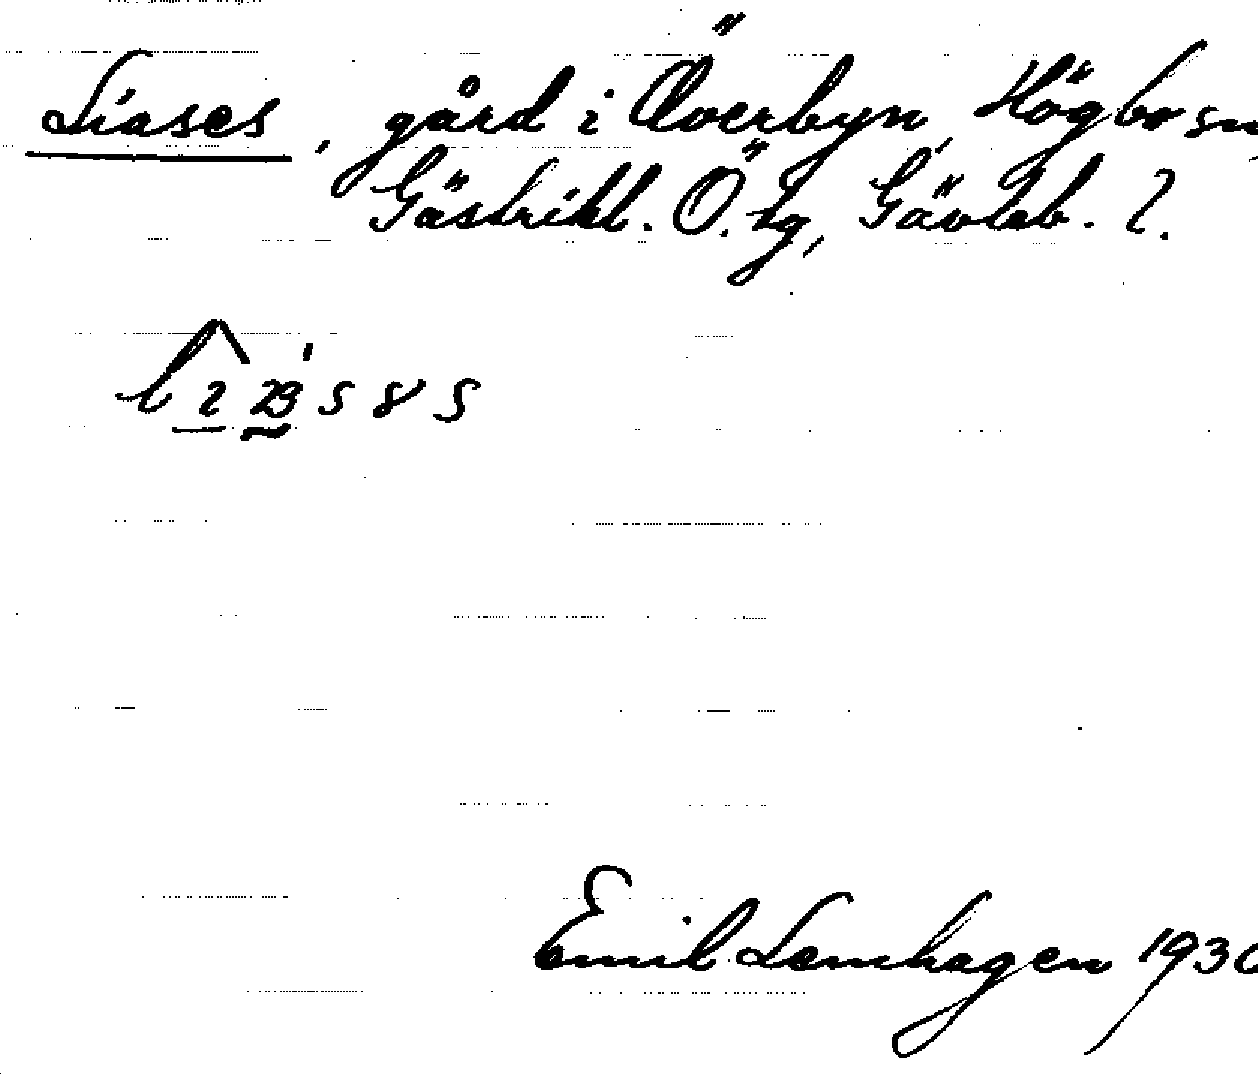 Liases, gård i Överbyn, Högbo sn,
Gästrikl. Ö. tg, Gävleb. l.
Emil Lemhagen 1930